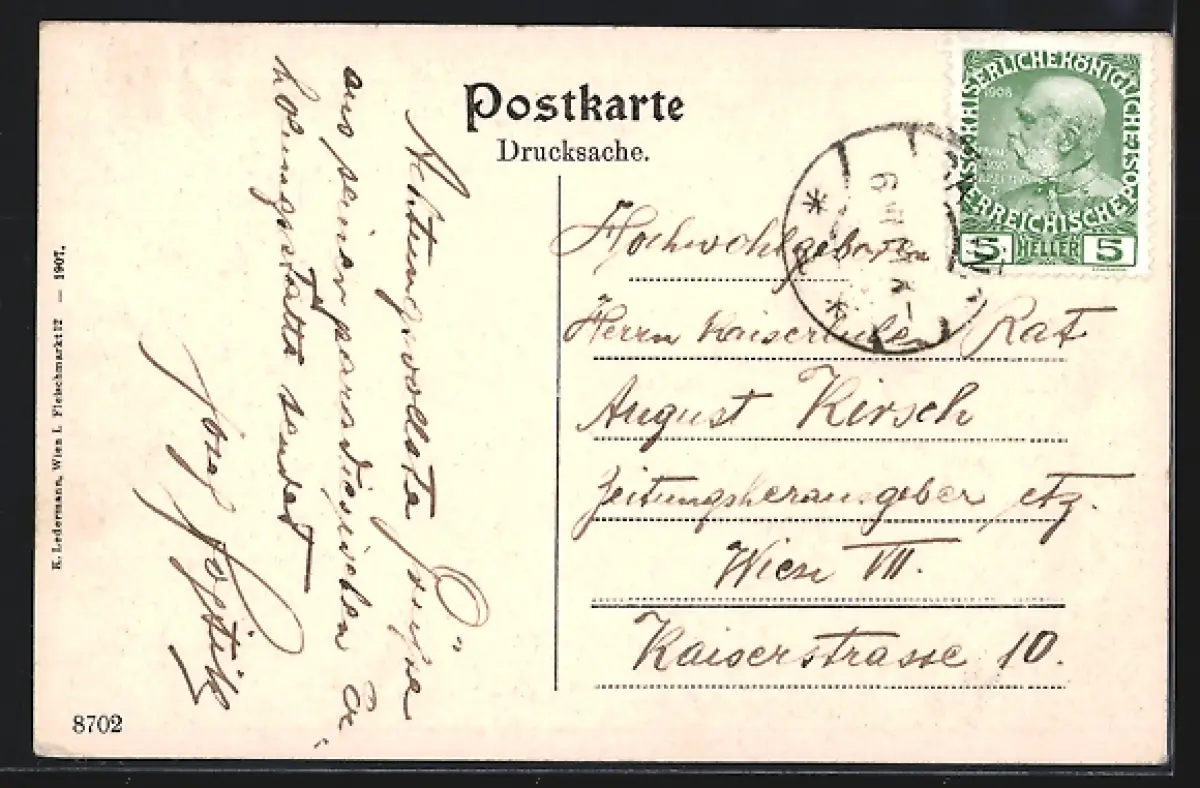 Postkarte
Drucksache.
Achtungsvollste Grüsse
aus seiner paradiesischen Er-
holungsstätte sendet
Josef
Hochwohlgeboren
Herrn Kaiserlichen Rat
August Kirsch
Zeitungsherausgeber etz.
Wien VII.
Kaiserstrasse 10.
KAISERLICHE KÖNIGLICHE ÖSTERREICHISCHE POST
1908
5 HELLER 5
K. Ledermann, Wien I. Fleischmarkt 12 — 1907.
8702